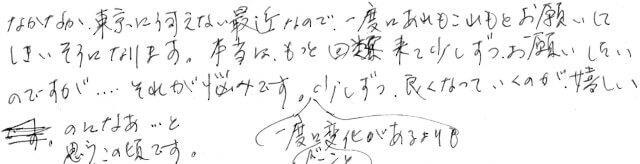 なかなか、東京に伺えない最近なので、一度にあれもこれもとお願いして
しまいそうになります。本当は、もっと回数来て少しずつ、お願いしたい
のですが‥‥それが悩みです。少しずつ、良くなっていくのが、嬉しい
のになあ…と
思うこの頃です。
一度に変化があるよりも